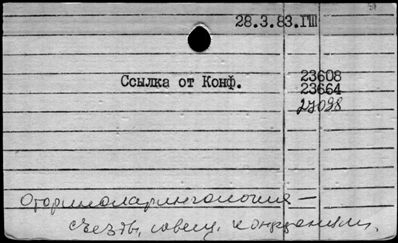 28.3.83.ГШ
Ссылка от Конф.
23608
23664
27098
Оториноларингология —
съезды, совещ. конференции.